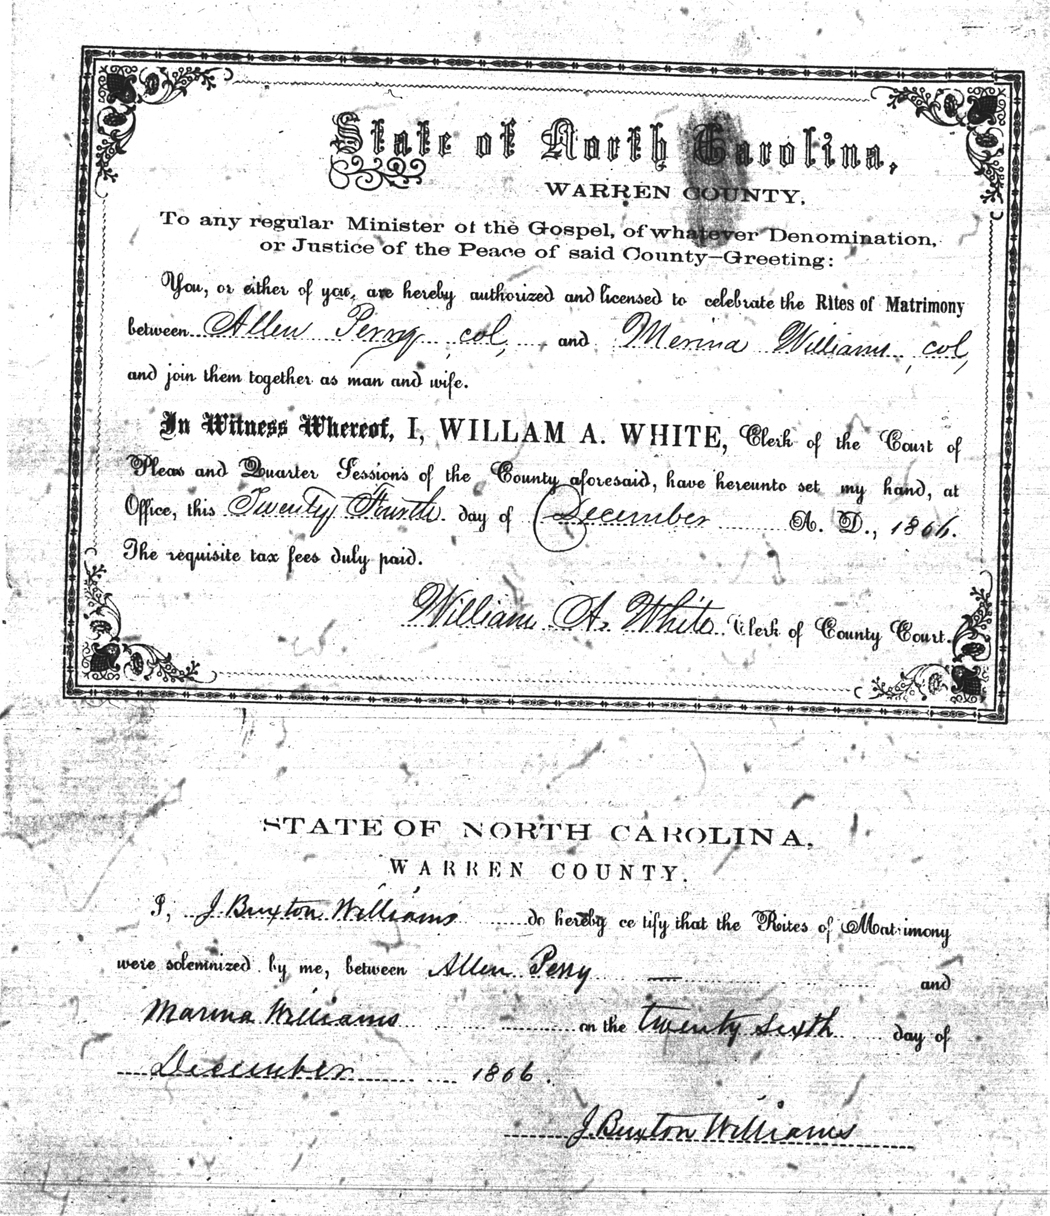 State of North Carolina,
WARREN COUNTY.
To any regular Minister of the Gospel, of whatever Denomination,
or Justice of the Peace of said County—Greeting:
You, or either of you, are hereby authorized and licensed to celebrate the Rites of Matrimony
between Allen Perry col, and Merina Williams, col,
and join them together as man and wife.
In Witness Whereof, I, WILLAM A. WHITE, Clerk of the Court of
Pleas and Quarter Sessions of the County aforesaid, have hereunto set my hand, at
Office, this Twenty Fourth day of December A. D., 1866.
The requisite tax fees duly paid.
William A. White Clerk of County Court.
STATE OF NORTH CAROLINA,
WARREN COUNTY.
I, J. Buxton Williams do hereby ce tify that the Rites of Matrimony
were solemnized by me, between Allen Perry and
Marina Williams on the twenty sixth day of
December 1866.
J. Buxton Williams